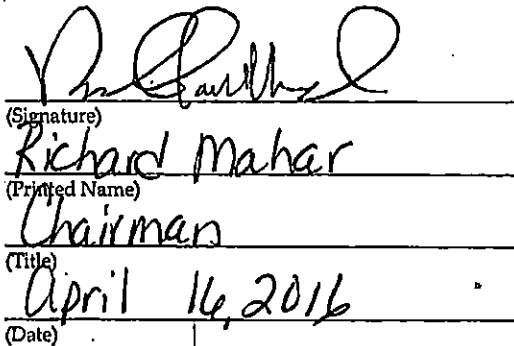 (Signature)
Richard Mahar
(Printed Name)
Chairman
(Title)
April 16, 2016
(Date)